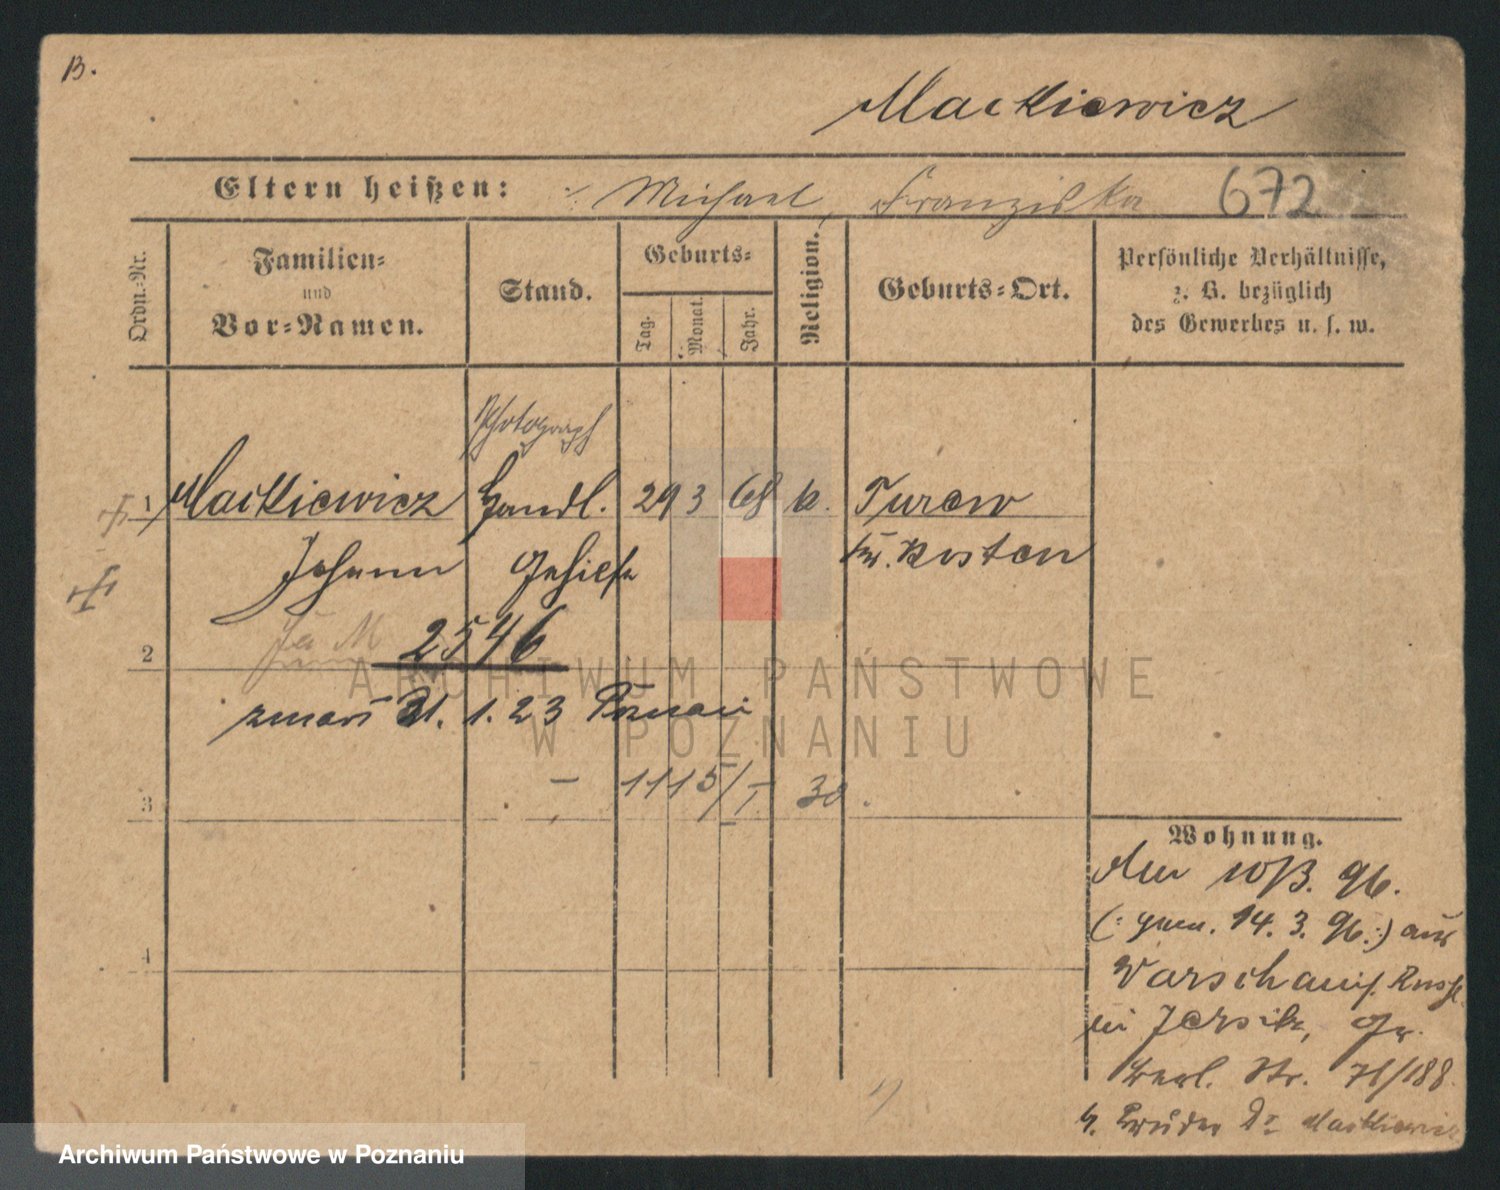 B.
Mackiewicz
Eltern heißen: Michael, Franziska 672
Ordn.-Nr.
Familien-
und
Vor-Namen.
Stand.
Geburts-
Tag.
Monat.
Jahr.
Religion.
Geburts-Ort.
Persönliche Verhältnisse,
z. B. bezüglich
des Gewerbes u. s. w.
Photograph
1 Mackiewicz Handl. 29 3 68 k. Turew
Johann Gehilfe Kr. Kosten
2546
2
zmarł 21. 1. 23 Poznań
- 1115/I 30.
3
4
Wohnung.
96.
(: 14. 3. 96 :) aus
Warschau i. Russl.
in Jersitz, Gr.
Berl. Str. 78/188
b. Bruder Mackiewicz
ARCHIWUM PAŃSTWOWE
W POZNANIU
Archiwum Państwowe w Poznaniu